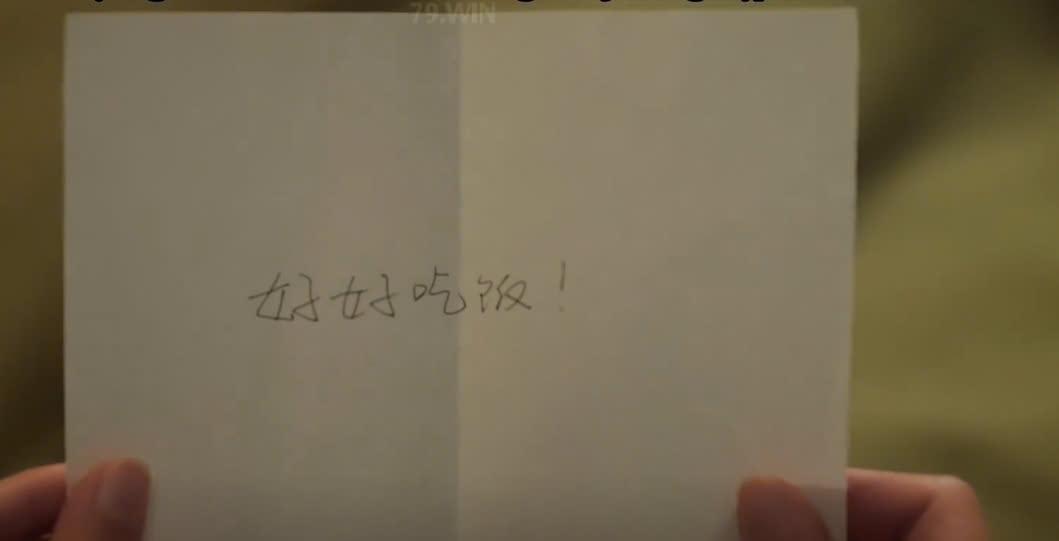 79.WIN
好好吃饭！